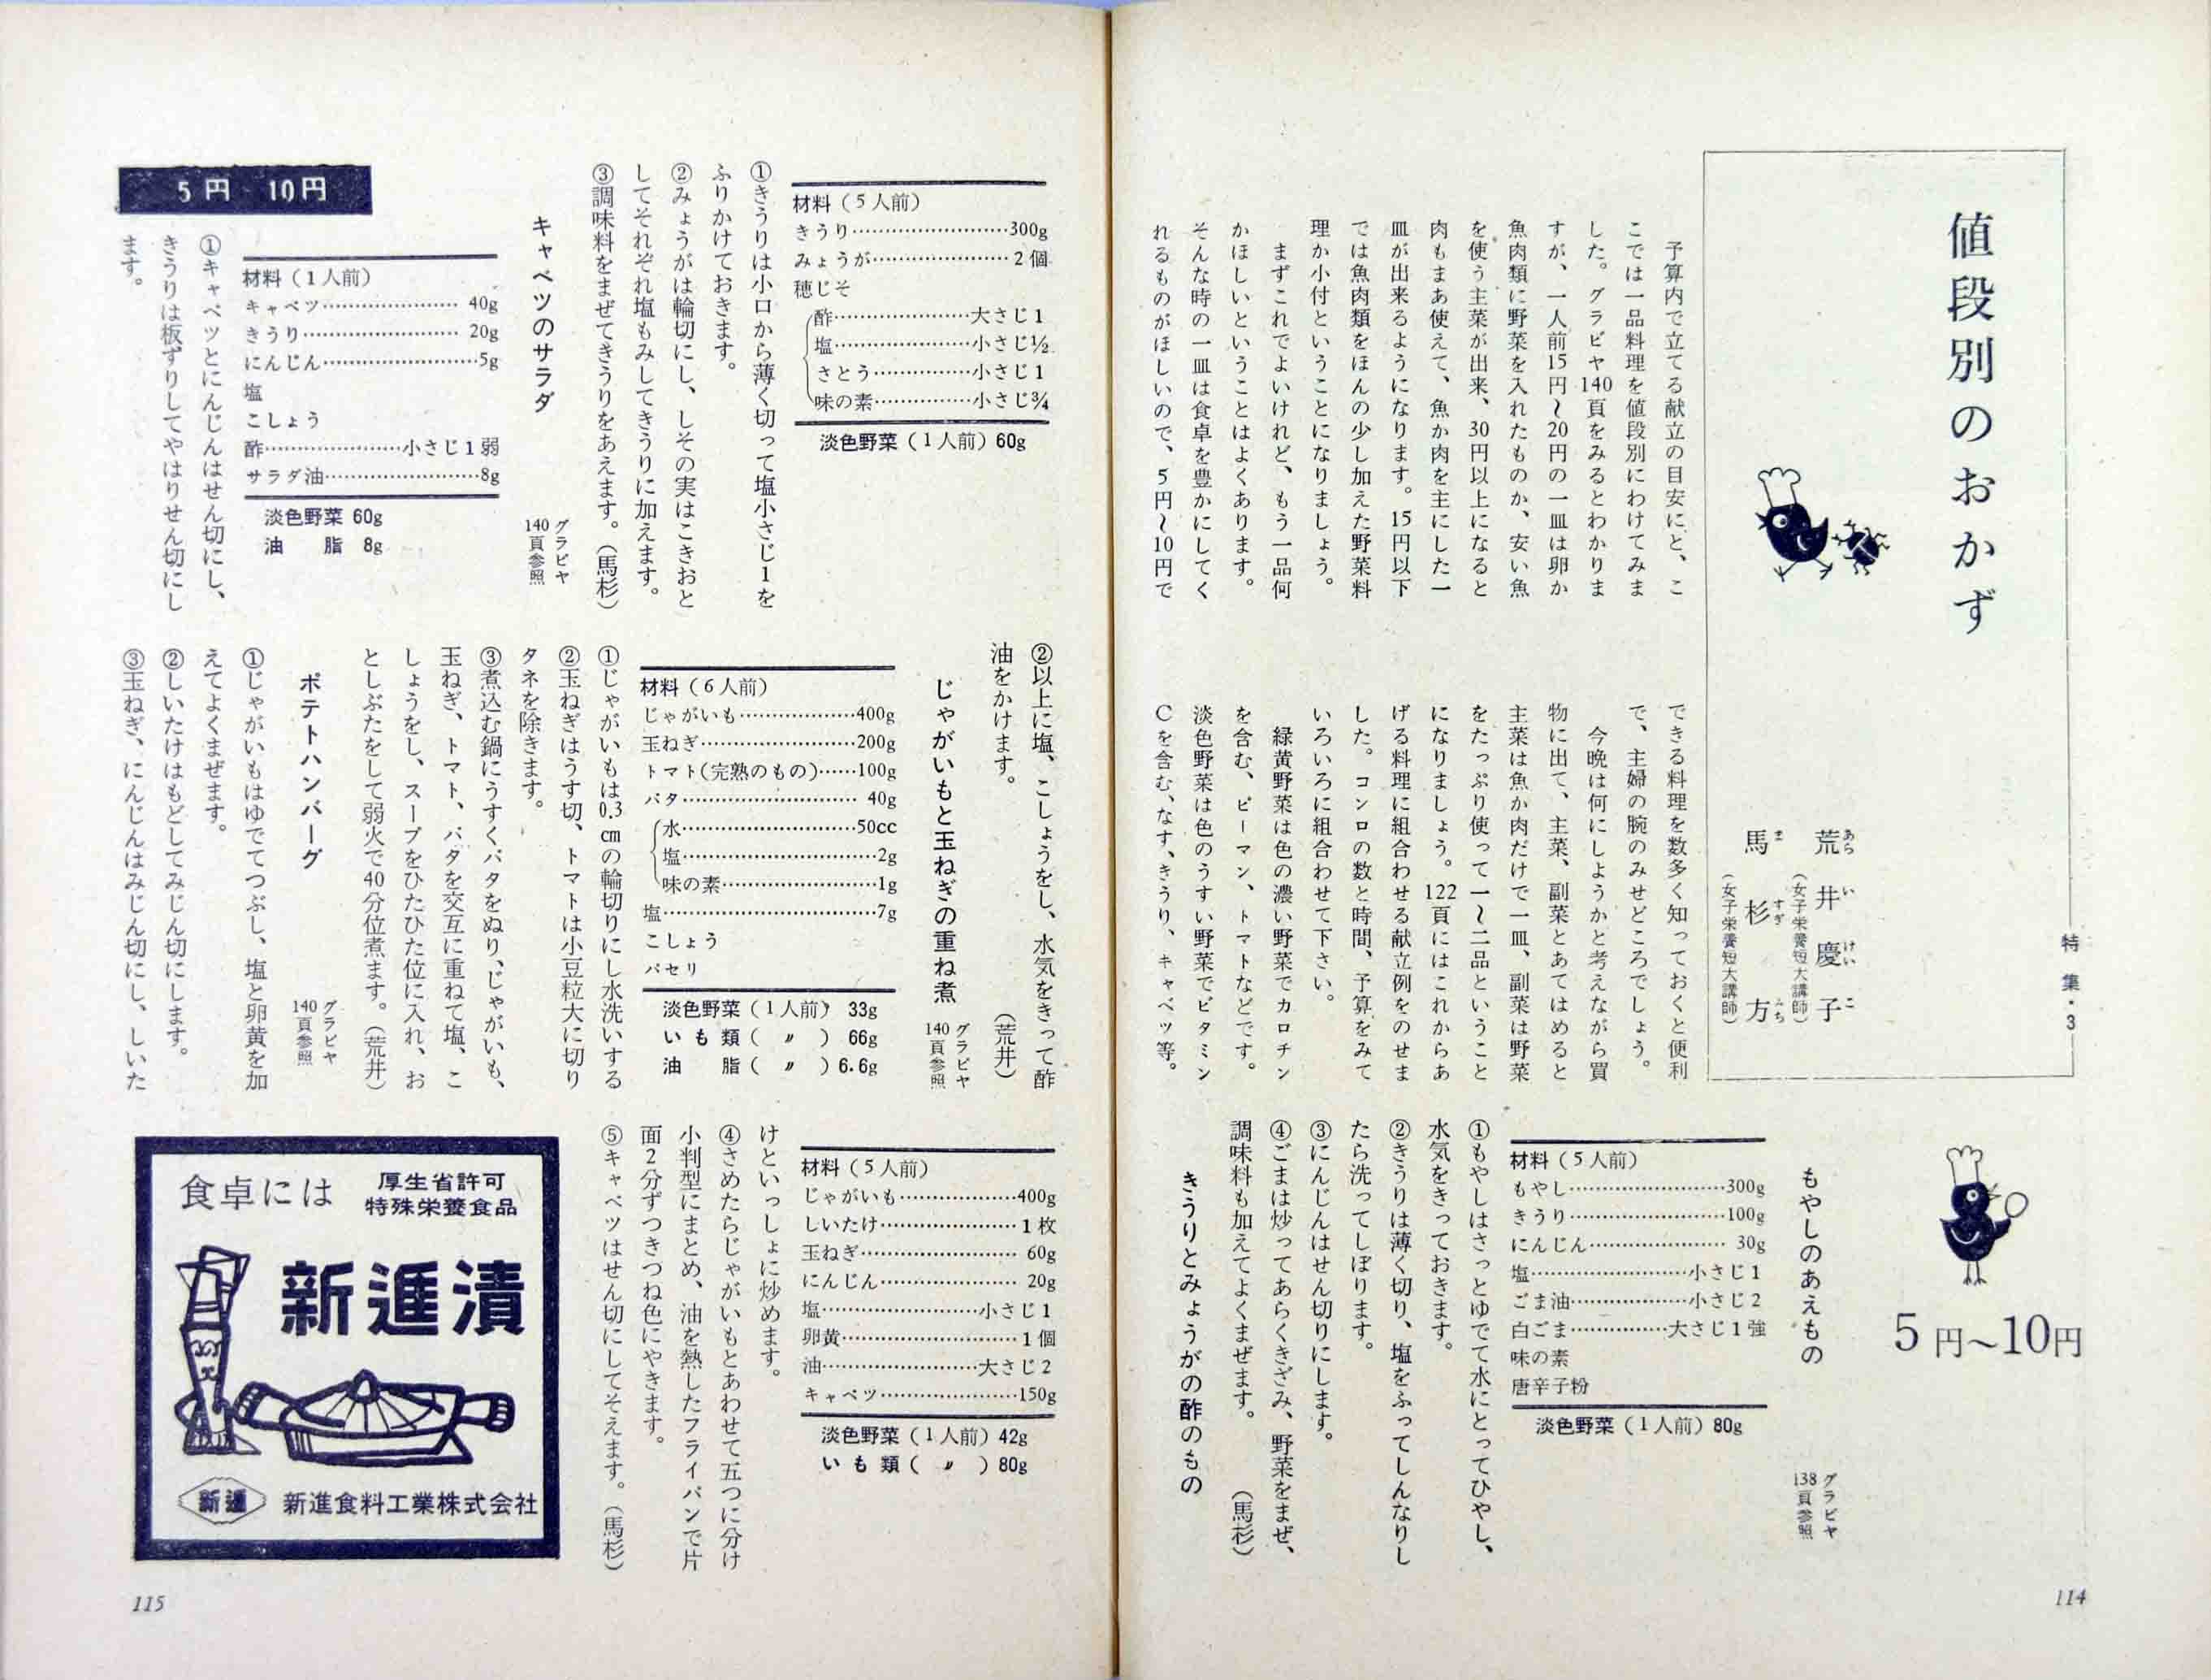 特集・3
値段別のおかず
荒井慶子
あらいけいこ
(女子栄養短大講師)
馬杉方
ますぎみち
(女子栄養短大講師)
予算内で立てる献立の目安にと、こ
こでは一品料理を値段別にわけてみま
した。グラビヤ140頁をみるとわかりま
すが、一人前15円〜20円の一皿は卵か
魚肉類に野菜を入れたものか、安い魚
を使う主菜が出来、30円以上になると
肉もまあ使えて、魚か肉を主にした一
皿が出来るようになります。15円以下
では魚肉類をほんの少し加えた野菜料
理か小付ということになりましょう。
まずこれでよいけれど、もう一品何
かほしいということはよくあります。
そんな時の一皿は食卓を豊かにしてく
れるものがほしいので、5円〜10円で
できる料理を数多く知っておくと便利
で、主婦の腕のみせどころでしょう。
今晩は何にしようかと考えながら買
物に出て、主菜、副菜とあてはめると
主菜は魚か肉だけで一皿、副菜は野菜
をたっぷり使って一〜二品ということ
になりましょう。122頁にはこれからあ
げる料理に組合わせる献立例をのせま
した。コンロの数と時間、予算をみて
いろいろに組合わせて下さい。
緑黄野菜は色の濃い野菜でカロチン
を含む、ピーマン、トマトなどです。
淡色野菜は色のうすい野菜でビタミン
Cを含む、なす、きうり、キャベツ等。
5円〜10円
もやしのあえもの
グラビヤ
138頁参照
材料(5人前)
もやし……………………300g
きうり……………………100g
にんじん………………… 30g
塩……………………小さじ1
ごま油………………小さじ2
白ごま……………大さじ1強
味の素
唐辛子粉
淡色野菜(1人前)80g
①もやしはさっとゆでて水にとってひやし、
水気をきっておきます。
②きうりは薄く切り、塩をふってしんなりし
たら洗ってしぼります。
③にんじんはせん切りにします。
④ごまは炒ってあらくきざみ、野菜をまぜ、
調味料も加えてよくまぜます。(馬杉)
きうりとみょうがの酢のもの
114
材料(5人前)
きうり……………………300g
みょうが…………………2個
穂じそ
酢…………………大さじ1
塩…………………小さじ½
さとう……………小さじ1
味の素……………小さじ¾
淡色野菜(1人前)60g
①きうりは小口から薄く切って塩小さじ1を
ふりかけておきます。
②みょうがは輪切にし、しその実はこきおと
してそれぞれ塩もみしてきうりに加えます。
③調味料をまぜてきうりをあえます。(馬杉)
キャベツのサラダ
グラビヤ
140頁参照
5円 10円
材料(1人前)
キャベツ………………… 40g
きうり…………………… 20g
にんじん……………………5g
塩
こしょう
酢…………………小さじ1弱
サラダ油……………………8g
淡色野菜 60g
油 脂 8g
①キャベツとにんじんはせん切にし、
きうりは板ずりしてやはりせん切にし
ます。
②以上に塩、こしょうをし、水気をきって酢
油をかけます。(荒井)
じゃがいもと玉ねぎの重ね煮
グラビヤ
140頁参照
材料(6人前)
じゃがいも………………400g
玉ねぎ……………………200g
トマト(完熟のもの)……100g
バタ……………………… 40g
水………………………50cc
塩…………………………2g
味の素……………………1g
塩……………………………7g
こしょう
パセリ
淡色野菜(1人前) 33g
いも類(〃) 66g
油 脂(〃)6.6g
①じゃがいもは0.3cmの輪切りにし水洗いする
②玉ねぎはうす切、トマトは小豆粒大に切り
タネを除きます。
③煮込む鍋にうすくバタをぬり、じゃがいも、
玉ねぎ、トマト、バタを交互に重ねて塩、こ
しょうをし、スープをひたひた位に入れ、お
としぶたをして弱火で40分位煮ます。(荒井)
ポテトハンバーグ
グラビヤ
140頁参照
①じゃがいもはゆでてつぶし、塩と卵黄を加
えてよくまぜます。
②しいたけはもどしてみじん切にします。
③玉ねぎ、にんじんはみじん切にし、しいた
材料(5人前)
じゃがいも………………400g
しいたけ…………………1枚
玉ねぎ…………………… 60g
にんじん………………… 20g
塩……………………小さじ1
卵黄………………………1個
油……………………大さじ2
キャベツ…………………150g
淡色野菜(1人前)42g
いも類(〃)80g
けといっしょに炒めます。
④さめたらじゃがいもとあわせて五つに分け
小判型にまとめ、油を熱したフライパンで片
面2分ずつきつね色にやきます。
⑤キャベツはせん切にしてそえます。(馬杉)
食卓には
厚生省許可
特殊栄養食品
新進漬
新進
新進食料工業株式会社
115